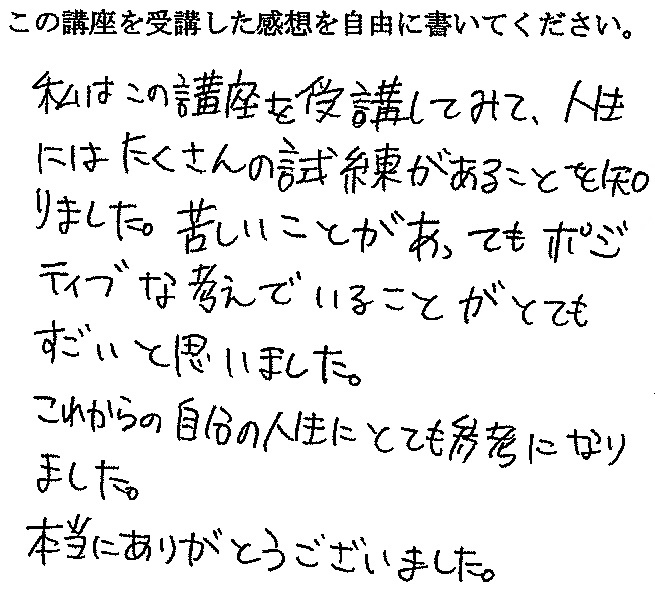 この講座を受講した感想を自由に書いてください。
私はこの講座を受講してみて、人生
にはたくさんの試練があることを知
りました。苦しいことがあってもポジ
ティブな考えでいることがとても
すごいと思いました。
これからの自分の人生にとても参考になり
ました。
本当にありがとうございました。